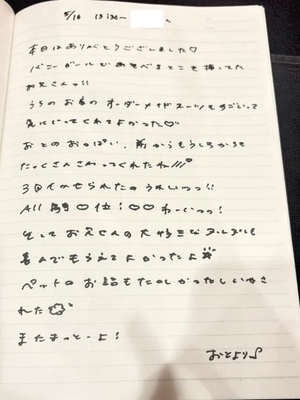 5/16 13:30〜
本日はありがとうございました♡
バニーガールであそべまとこも探してた
お兄さんっ!!
うちのお店のオーダーメイドスーツもすごいって
気に入ってくれてよかった♡
おとのおっぱい、前からもうしろからも
たっくさんさわってくれたね///
3回イかせられたのうれしいっっ!!
All 1位!♡♡わーいっっ!
そしてお兄さんの大好きな
喜んでもらえてよかったよ
ペットのお話もたのしかったしいやさ
れた
またまってーよ!
おとより♪